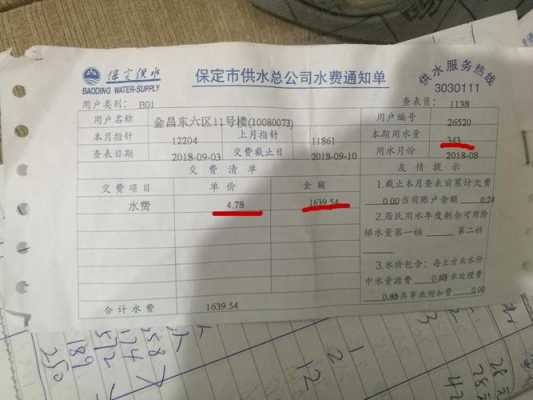 保定供水
BAODING WATER-SUPPLY
保定市供水总公司水费通知单
供水服务热线
3030111
用户类别： B01
查表员： 1138
用户名称 金昌东六区11号楼(10080073) 用户编号 26520
本月指针 12204 上月指针 11861 本期用水量 343
查表日期 2018-09-03 交费截止日 2018-09-10 用水月份 2018-08
交费清单 友情提示
交费项目 单价 金额
水费 4.78 1639.54
1.截止本月查表前累计欠费
0.00 当前账户金额 0.24
2.居民用水年度剩余可用阶
梯水量第一档 第二档
3.水价包含：每立方米水价
中水资源费 水处理费
公共事业附加费 0.00
合计水费 1639.54
258
174
512
189
250
2
1
12
3